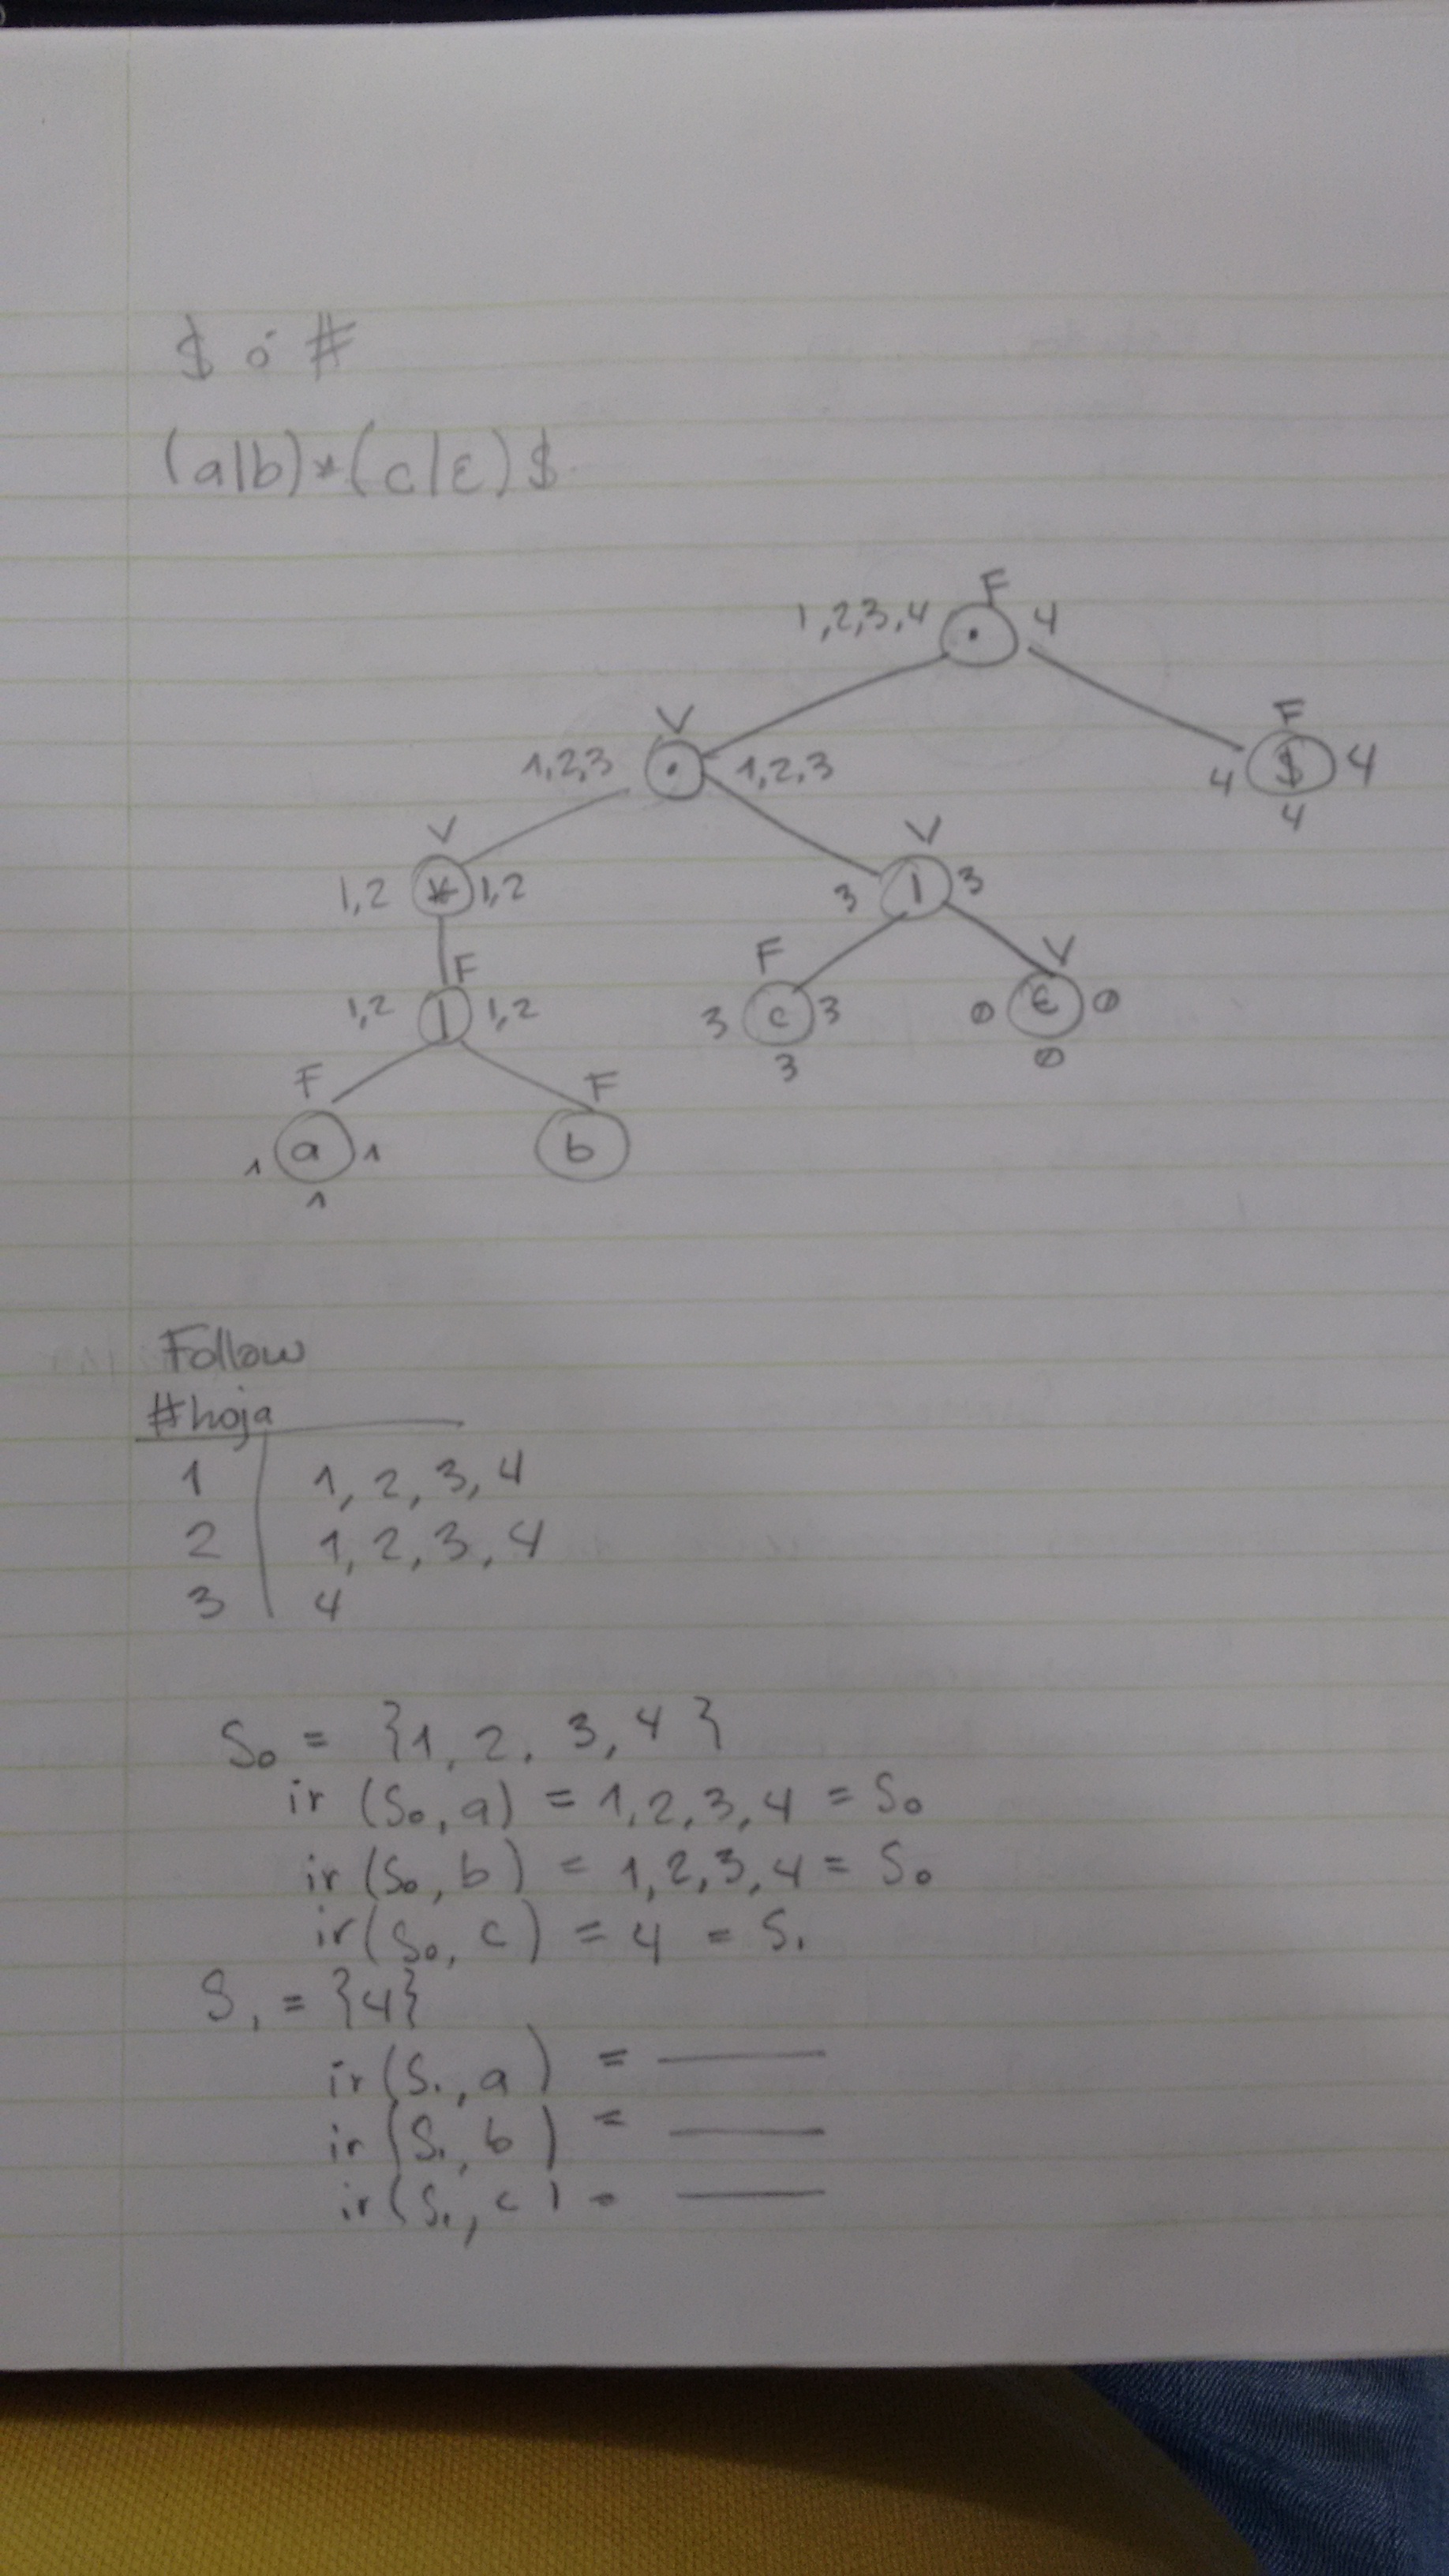 $ ó #
(a|b)*(c|ε)$
F
1,2,3,4 . 4
V
F
1,2,3 . 1,2,3
4 $ 4
4
V
V
1,2 * 1,2
3 | 3
F
F
V
1,2 | 1,2
3 c 3
ø ε ø
3
ø
F
F
1 a 1
b
1
Follow
#hoja
1 | 1, 2, 3, 4
2 | 1, 2, 3, 4
3 | 4
S₀ = {1, 2, 3, 4}
ir (S₀, a) = 1,2,3,4 = S₀
ir (S₀, b) = 1,2,3,4 = S₀
ir (S₀, c) = 4 = S₁
S₁ = {4}
ir (S₁, a) = ———
ir (S₁, b) = ———
ir (S₁, c) = ———